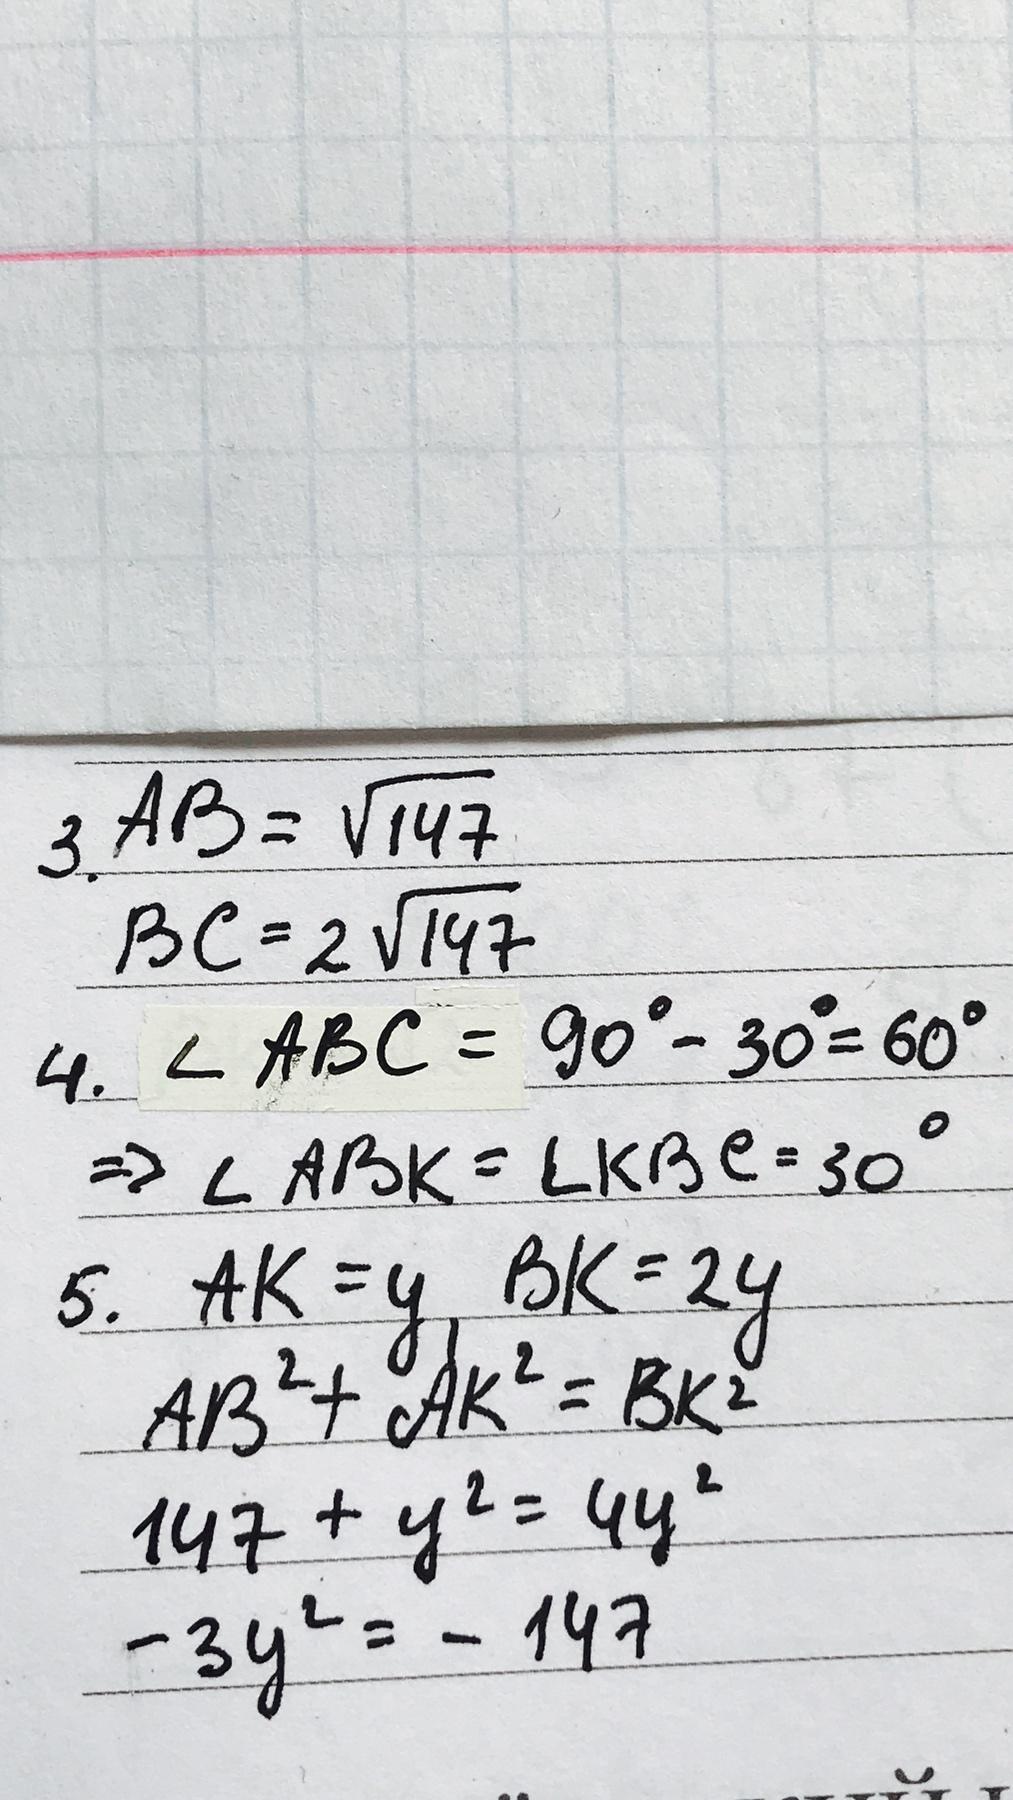 3. AB = √147
BC = 2√147
4. ∠ ABC = 90° - 30° = 60°
=> ∠ ABK = ∠KBC = 30°
5. AK = y, BK = 2y
AB² + AK² = BK²
147 + y² = 4y²
-3y² = - 147